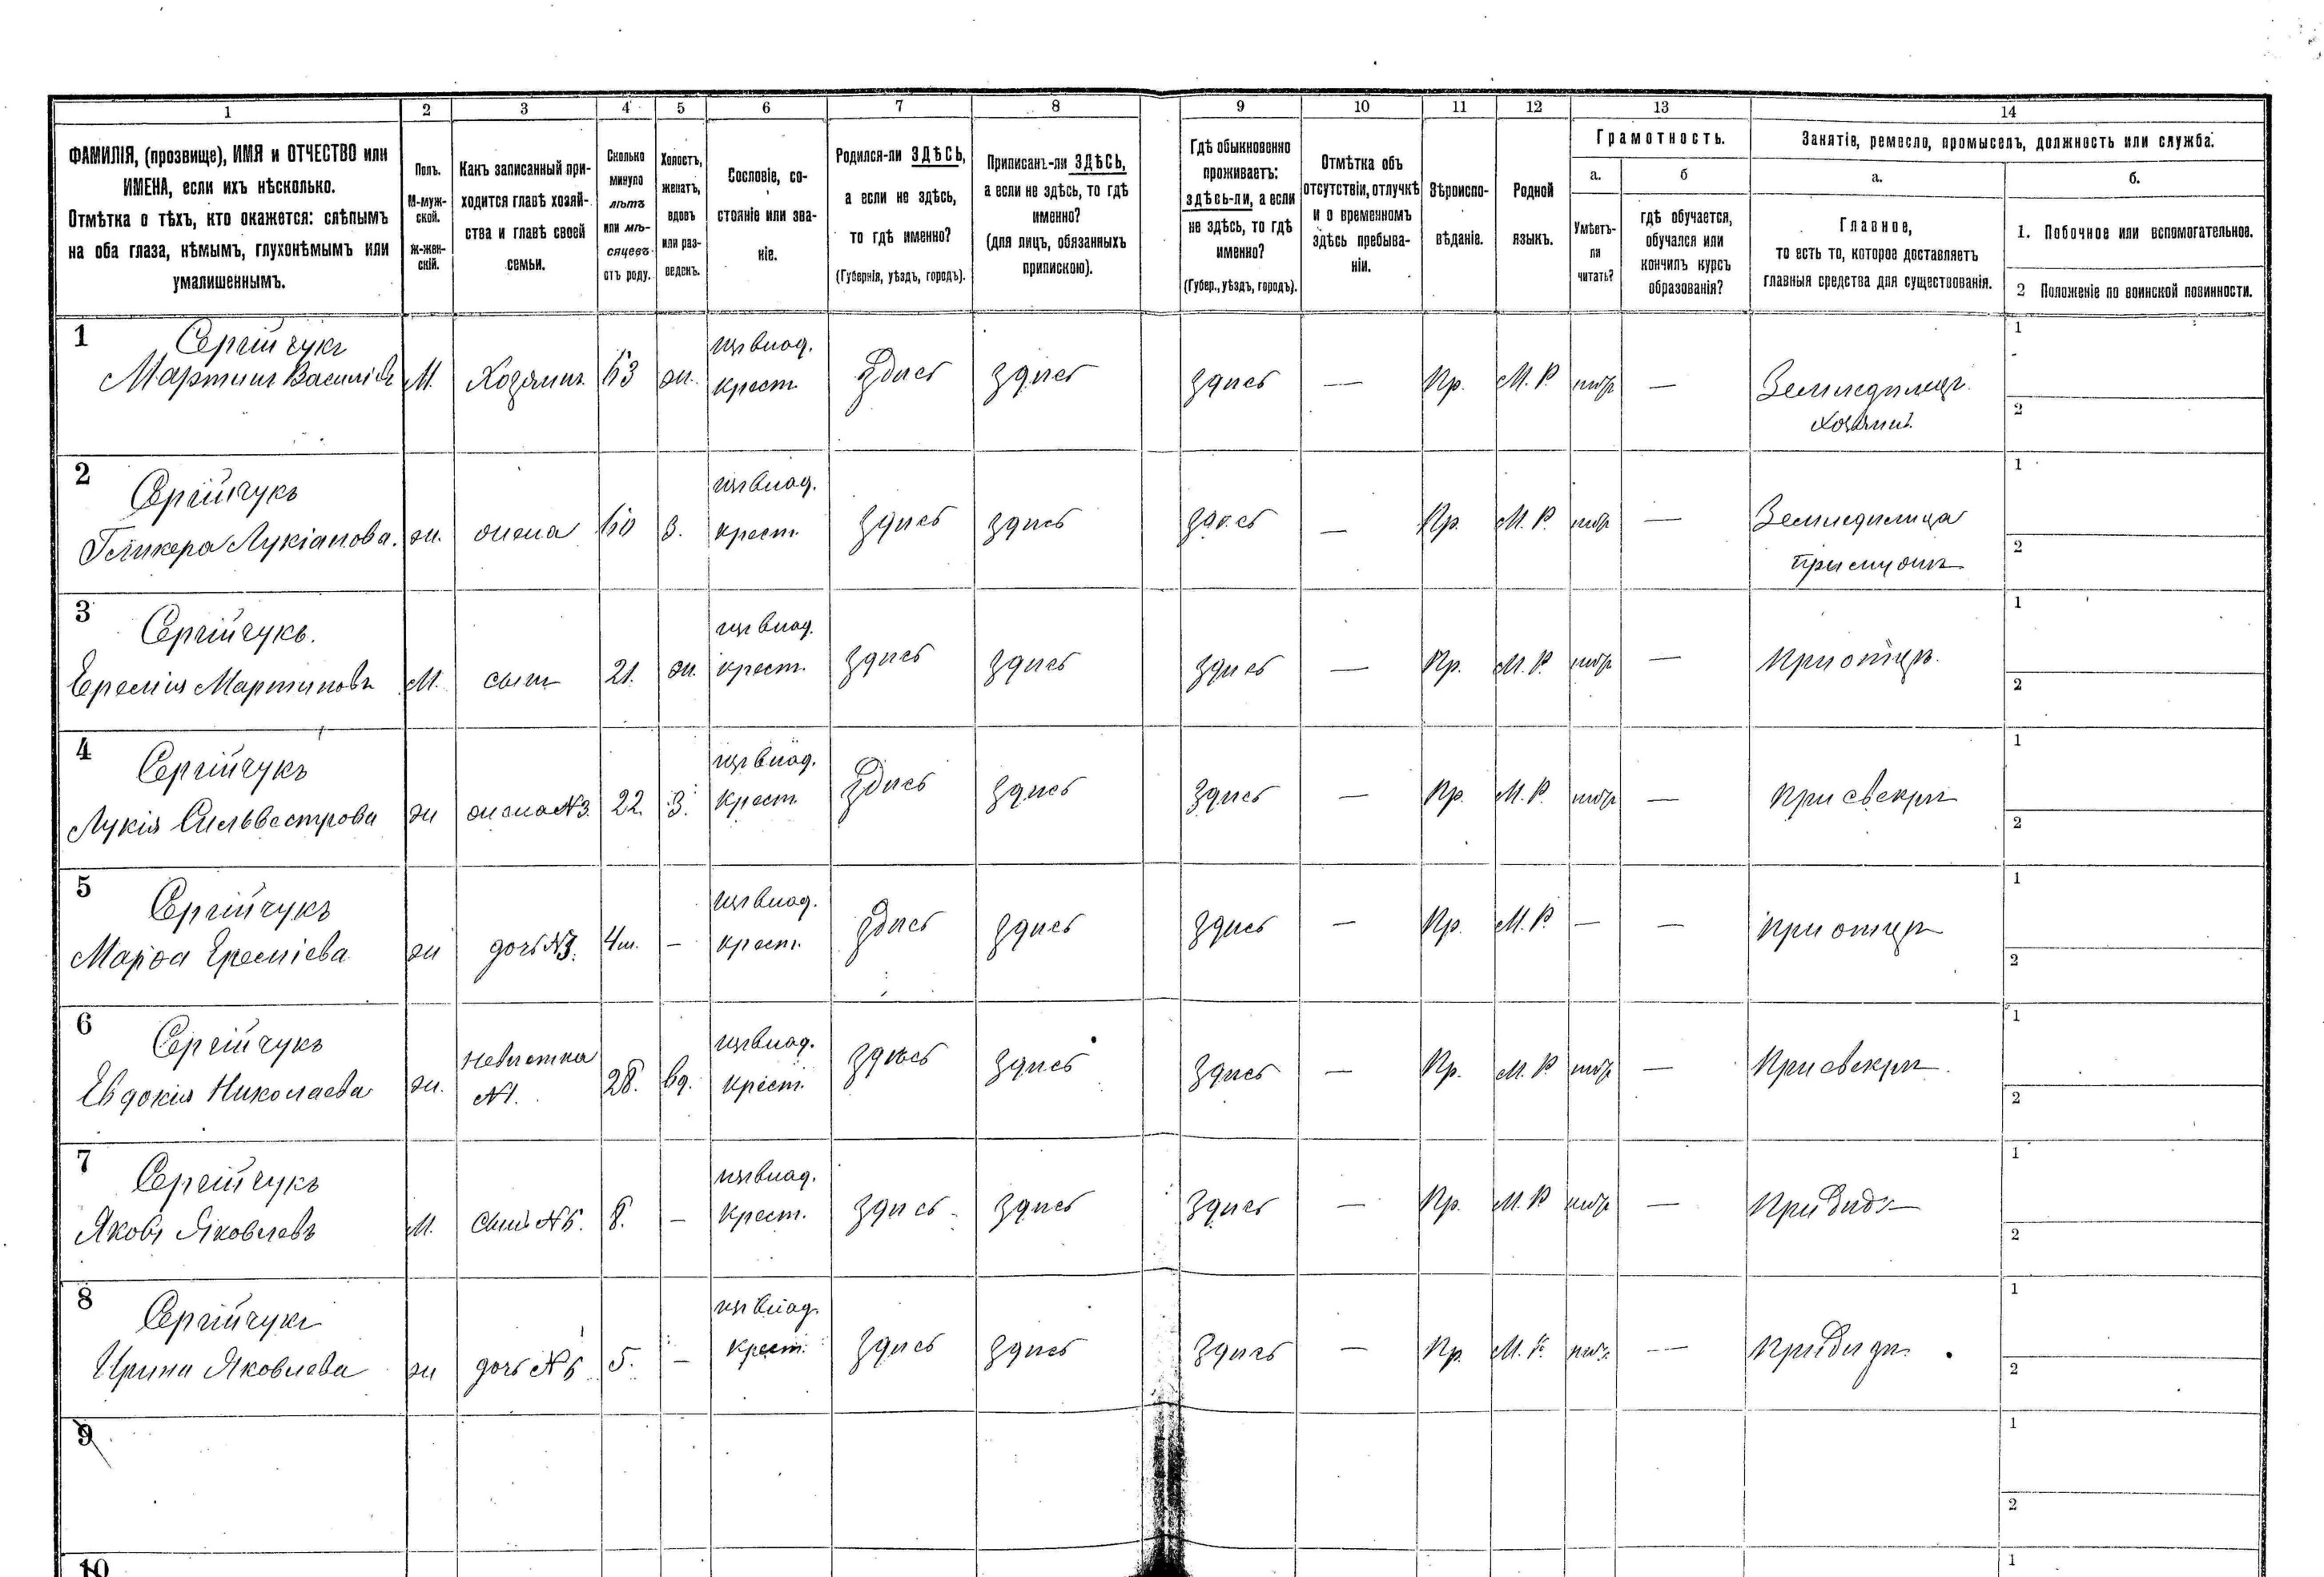 1 2 3 4 5 6 7 8 9 10 11 12 13 14
ФАМИЛІЯ, (прозвище), ИМЯ и ОТЧЕСТВО или
ИМЕНА, если ихъ нѣсколько.
Отмѣтка о тѣхъ, кто окажется: слѣпымъ
на оба глаза, нѣмымъ, глухонѣмымъ или
умалишеннымъ.
Полъ.
М-муж-
ской.
Ж-жен-
скій.
Какъ записанный при-
ходится главѣ хозяй-
ства и главѣ своей
семьи.
Сколько
минуло
лѣтъ
или мѣ-
сяцевъ
отъ роду.
Холостъ,
женатъ,
вдовъ
или раз-
веденъ.
Сословіе, со-
стояніе или зва-
ніе.
Родился-ли ЗДѢСЬ,
а если не здѣсь,
то гдѣ именно?
(Губернія, уѣздъ, городъ).
Приписанъ-ли ЗДѢСЬ,
а если не здѣсь, то гдѣ
именно?
(для лицъ, обязанныхъ
припискою).
Гдѣ обыкновенно
проживаетъ:
здѣсь-ли, а если
не здѣсь, то гдѣ
именно?
(Губер., уѣздъ, городъ).
Отмѣтка объ
отсутствіи, отлучкѣ
и о временномъ
здѣсь пребыва-
ніи.
Вѣроиспо-
вѣданіе.
Родной
языкъ.
Грамотность.
а.
Умѣетъ-
ли
читать?
б
гдѣ обучается,
обучался или
кончилъ курсъ
образованія?
Занятіе, ремесло, промыселъ, должность или служба.
а.
Главное,
то есть то, которое доставляетъ
главныя средства для существованія.
б.
1. Побочное или вспомогательное.
2 Положеніе по воинской повинности.
1 Сергійчукъ изъ влад. 1
Мартинъ Васильевъ М. Хозяинъ 63 ж. крест. Здѣсь здѣсь здѣсь — Пр. М. Р. — Земледѣлецъ
хозяинъ 2
2 Сергійчукъ изъ влад. 1
Гликера Лукіанова. ж. жена 60 З. крест. здѣсь здѣсь здѣсь — Пр. М. Р. — Земледѣлица
при мужѣ 2
3 Сергійчукъ. изъ влад. 1
Еремія Мартиновъ М. сынъ 21. ж. крест. здѣсь здѣсь здѣсь — Пр. М. Р. — при отцѣ. 2
4 Сергійчукъ изъ влад. 1
Лукія Сильвестрова ж жена N3. 22. З. крест. Здѣсь здѣсь здѣсь — Пр. М. Р. — при свекрѣ 2
5 Сергійчукъ изъ влад. 1
Марфа Ереміева ж дочь N3. 4м. — крест. Здѣсь здѣсь здѣсь — Пр. М. Р. — — при отцѣ 2
6 Сергійчукъ невѣстка изъ влад. 1
Евдокія Николаева ж. N1. 28. вд. крест. здѣсь здѣсь здѣсь — Пр. М. Р. — При свекрѣ 2
7 Сергійчукъ изъ влад. 1
Яковъ Яковлевъ М. сынъ N6. 8. — крест. здѣсь здѣсь здѣсь — Пр. М. Р — при дѣдѣ 2
8 Сергійчукъ изъ влад. 1
Ирина Яковлева ж дочь N6 5. — крест. здѣсь здѣсь здѣсь — Пр. М. Р. — при дѣдѣ. 2
9 1
2
10 1